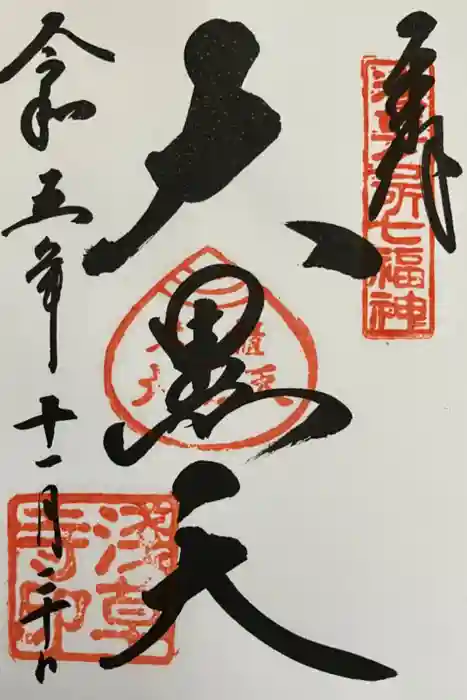 奉拝
浅草名所七福神
大黒天
令和五年十一月二十日
淺草寺印